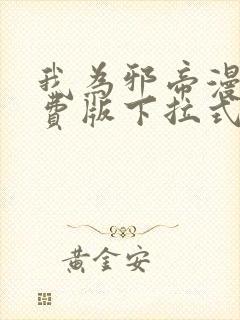 我为邪帝漫
费版下拉式
黄金安